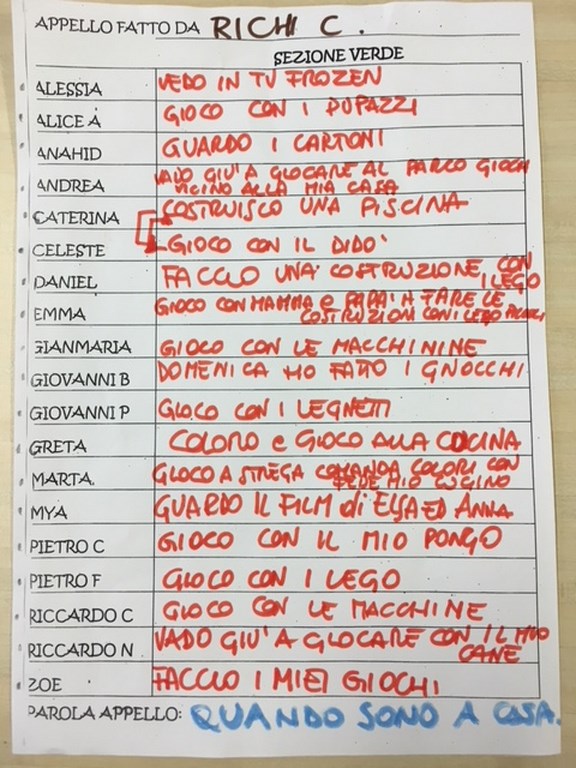 APPELLO FATTO DA RICHI C.
SEZIONE VERDE
ALESSIA VEDO IN TV FROZEN
ALICE A GIOCO CON I PUPAZZI
ANAHID GUARDO I CARTONI
ANDREA VADO GIU' A GIOCARE AL PARCO GIOCHI
VICINO ALLA MIA CASA
CATERINA COSTRUISCO UNA PISCINA
CELESTE GIOCO CON IL DIDO'
DANIEL FACCIO UNA COSTRUZIONE CON
I LEGO
EMMA GIOCO CON MAMMA e PAPA' A FARE LE
COSTRUZIONI CON I LEGO PICCOLI
GIANMARIA GIOCO CON LE MACCHININE
GIOVANNI B DOMENICA HO FATTO I GNOCCHI
GIOVANNI P GIOCO CON I LEGNETTI
GRETA COLORO e GIOCO ALLA CUCINA
MARTA. GIOCO A STREGA COMANDA COLORI CON
FEDE MIO CUGINO
MYA GUARDO IL FILM di ELSA ED ANNA
PIETRO C GIOCO CON IL MIO PONGO
PIETRO F GIOCO CON I LEGO
RICCARDO C GIOCO CON LE MACCHINE
RICCARDO N VADO GIU' A GIOCARE CON IL MIO
CANE
ZOE FACCIO I MIEI GIOCHI
PAROLA APPELLO: QUANDO SONO A CASA.